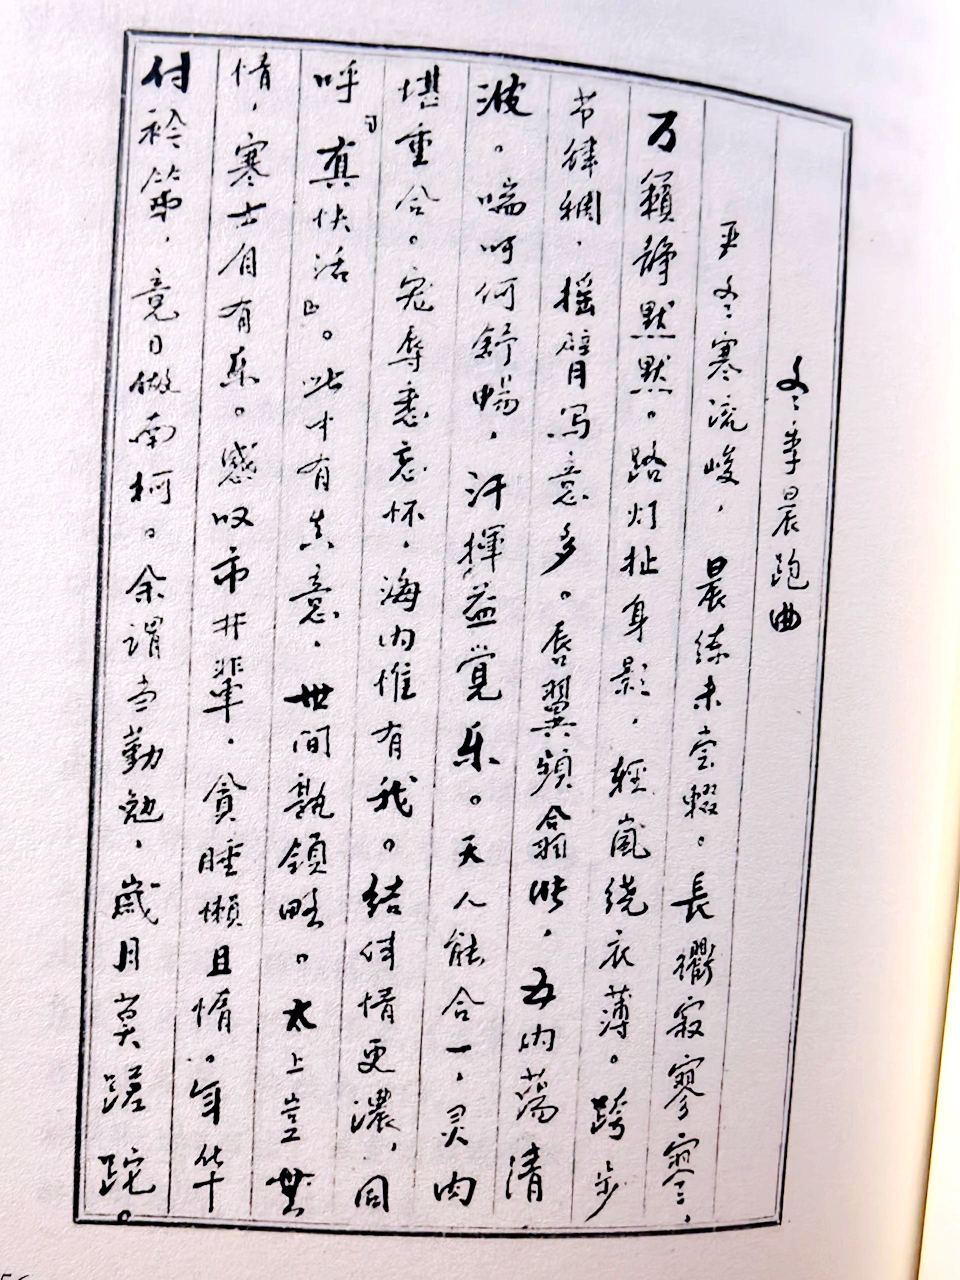 冬季晨跑曲
严冬寒流峻，晨练未尝辍。長衢寂寥寥，
万籁静默默。路灯扯身影，輕嵐绕衣薄。跨步
节律稠，摇臂写意多。唇翼频翕 ，五内荡清
波。喘呵何舒畅，汗揮益觉乐。天人能合一，灵肉
堪重合。宠辱悉忘怀，海内惟有我。结伴情更濃，同
呼“真快活”。此中有真意，世间孰领略。太上岂無
情，寒士自有乐。感叹市井輩，貪睡懒且惰。年华
付衿箪，竟日做南柯。余謂当勤勉，歲月莫蹉跎。
56